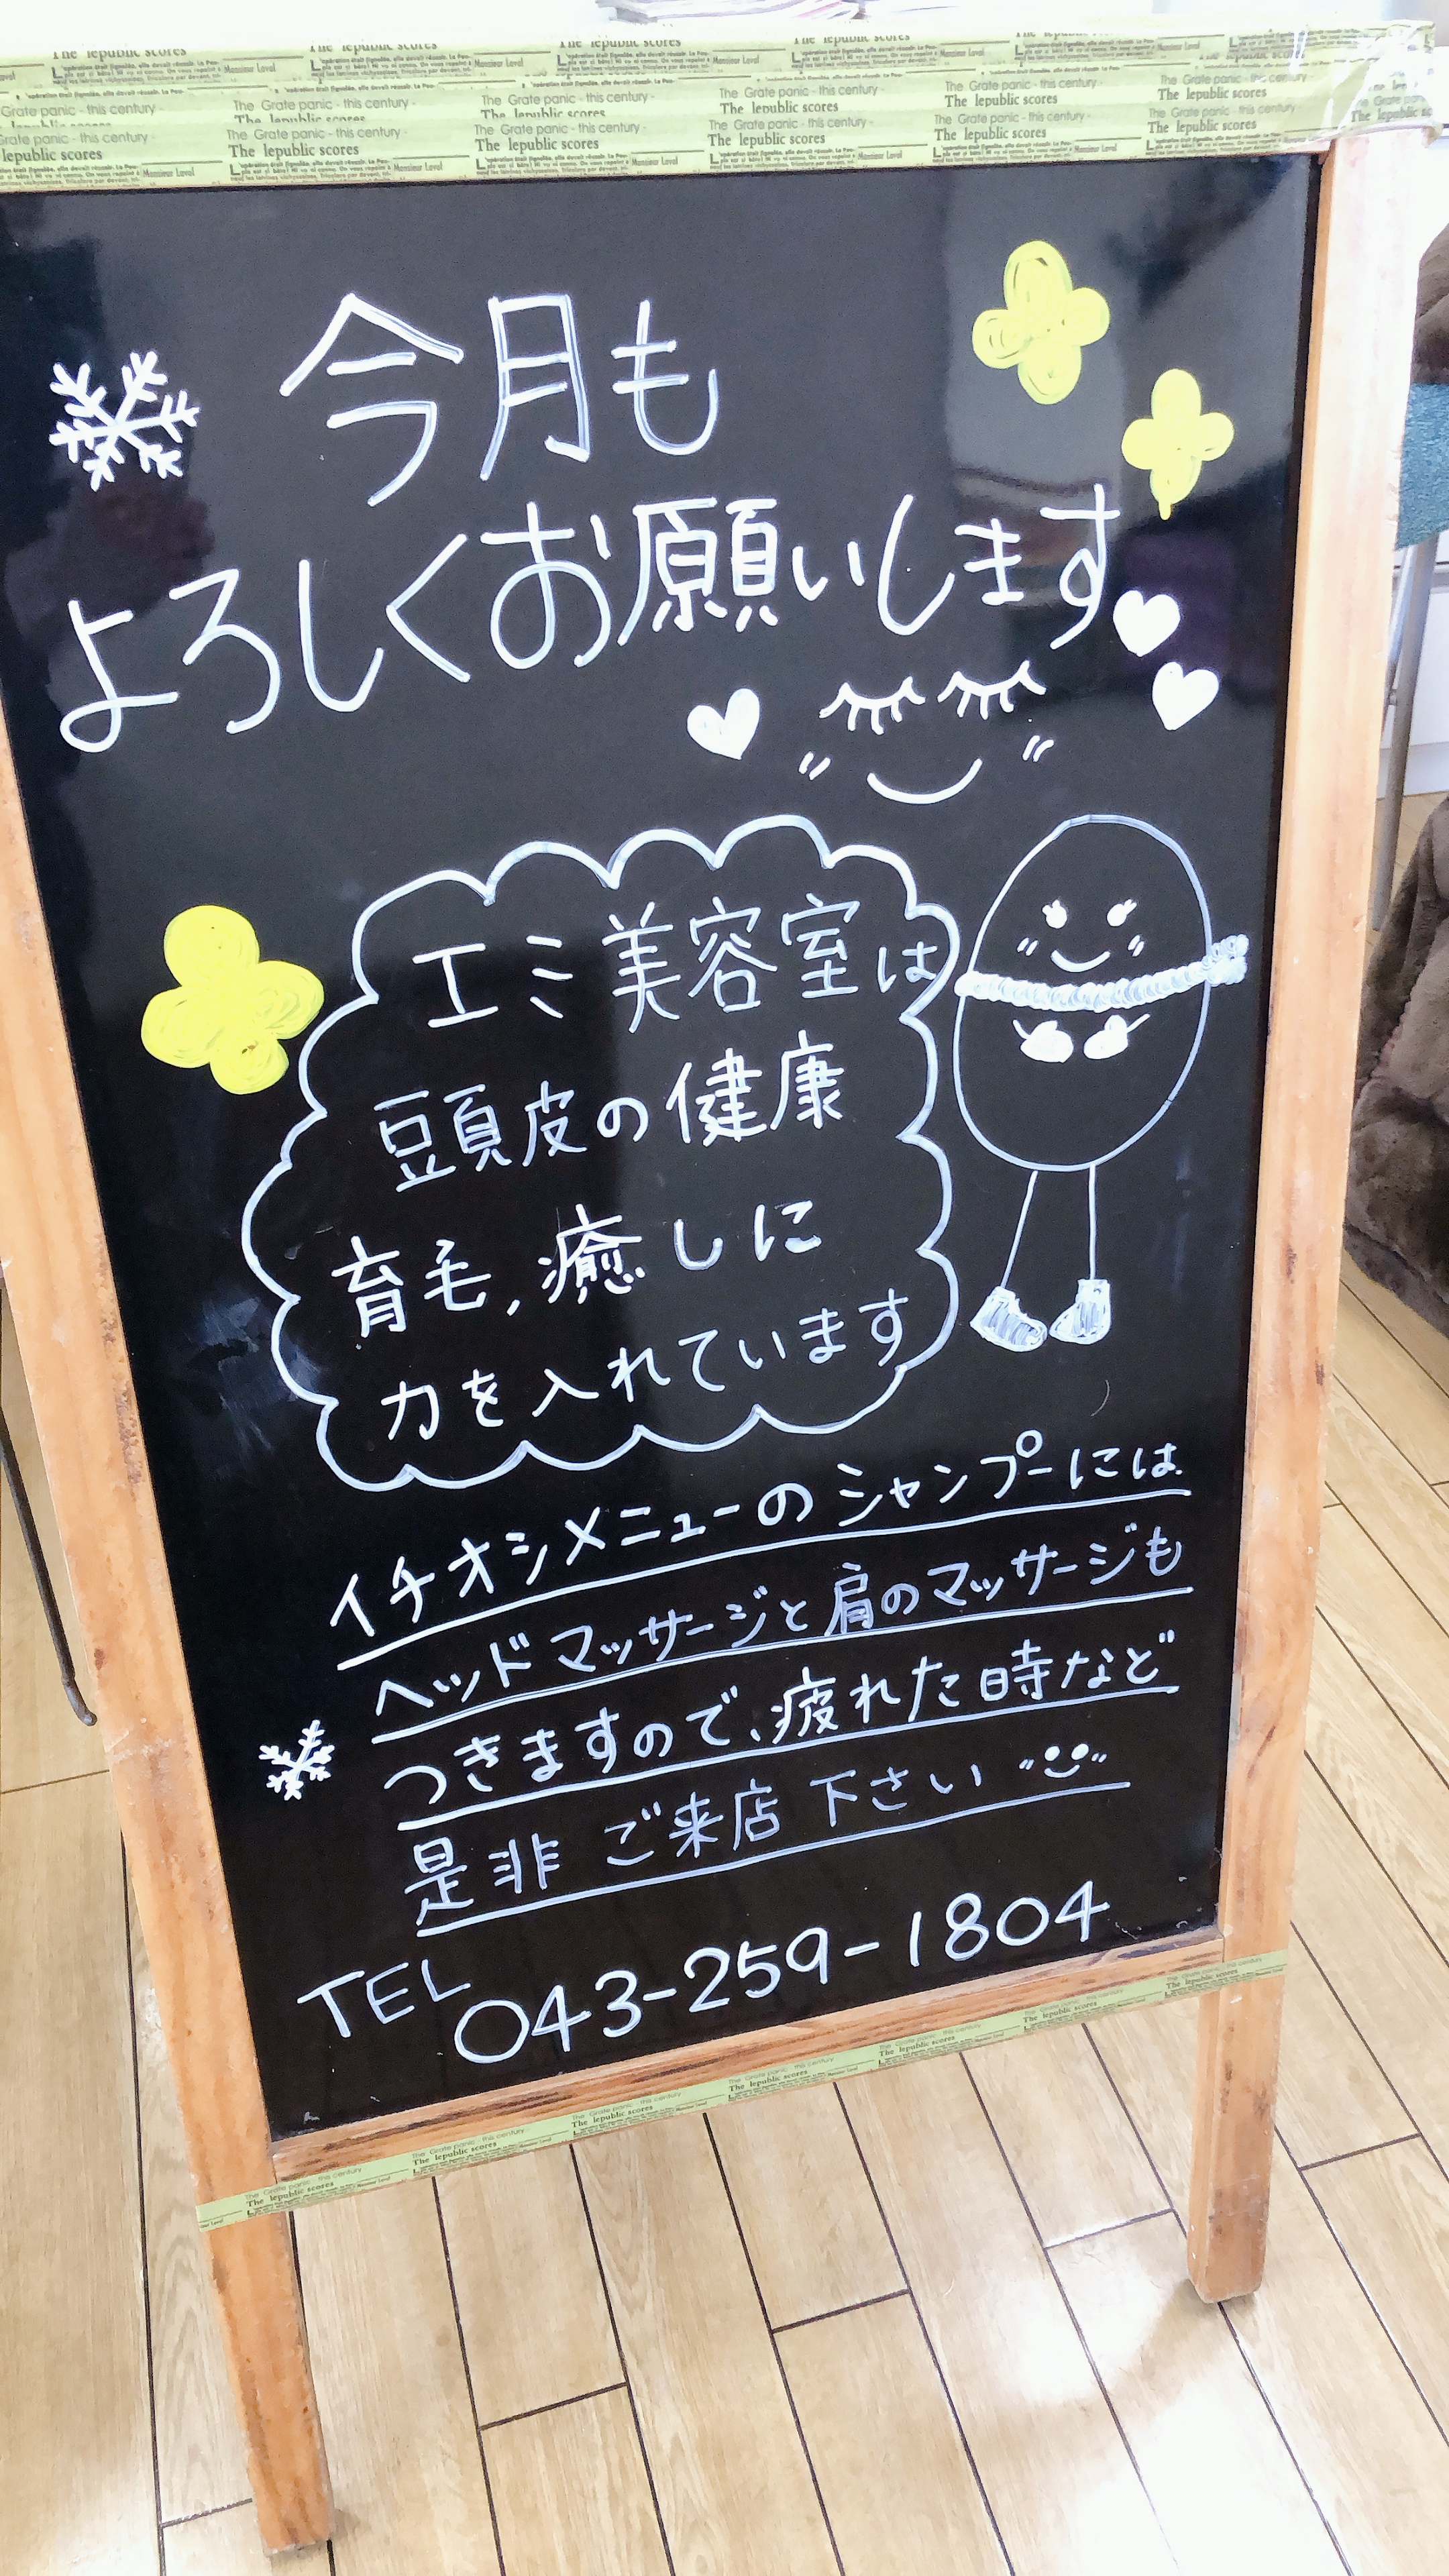 The lepublic scores
The Grate panic - this century -
The lepublic scores
Monsieur Laval
今月も
よろしくお願いします
エミ美容室は
頭皮の健康
育毛,癒しに
力を入れています
イチオシメニューのシャンプーには
ヘッドマッサージと肩のマッサージも
つきますので、疲れた時など
是非ご来店下さい
TEL 043-259-1804
The Grate panic - this century -
The lepublic scores